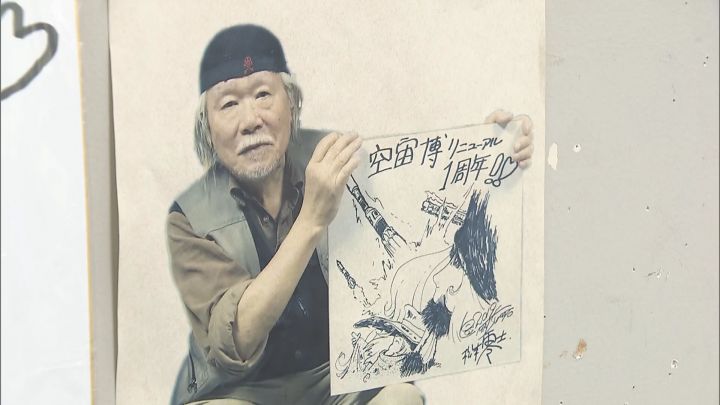 空宙博 リニューアル
1周年!!
松本零士